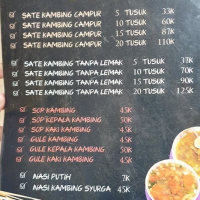 SATE KAMBING CAMPUR 5 TUSUK 33K
SATE KAMBING CAMPUR 10 TUSUK 60K
SATE KAMBING CAMPUR 15 TUSUK 87K
SATE KAMBING CAMPUR 20 TUSUK 110K
SATE KAMBING TANPA LEMAK 5 TUSUK 37K
SATE KAMBING TANPA LEMAK 10 TUSUK 70K
SATE KAMBING TANPA LEMAK 15 TUSUK 90K
SATE KAMBING TANPA LEMAK 20 TUSUK 125K
SOP KAMBING 45K
SOP KEPALA KAMBING 50K
SOP KAKI KAMBING 45K
GULE KAMBING 45K
GULE KEPALA KAMBING 50K
GULE KAKI KAMBING 45K
NASI PUTIH 7K
NASI KAMBING SYURGA 45K